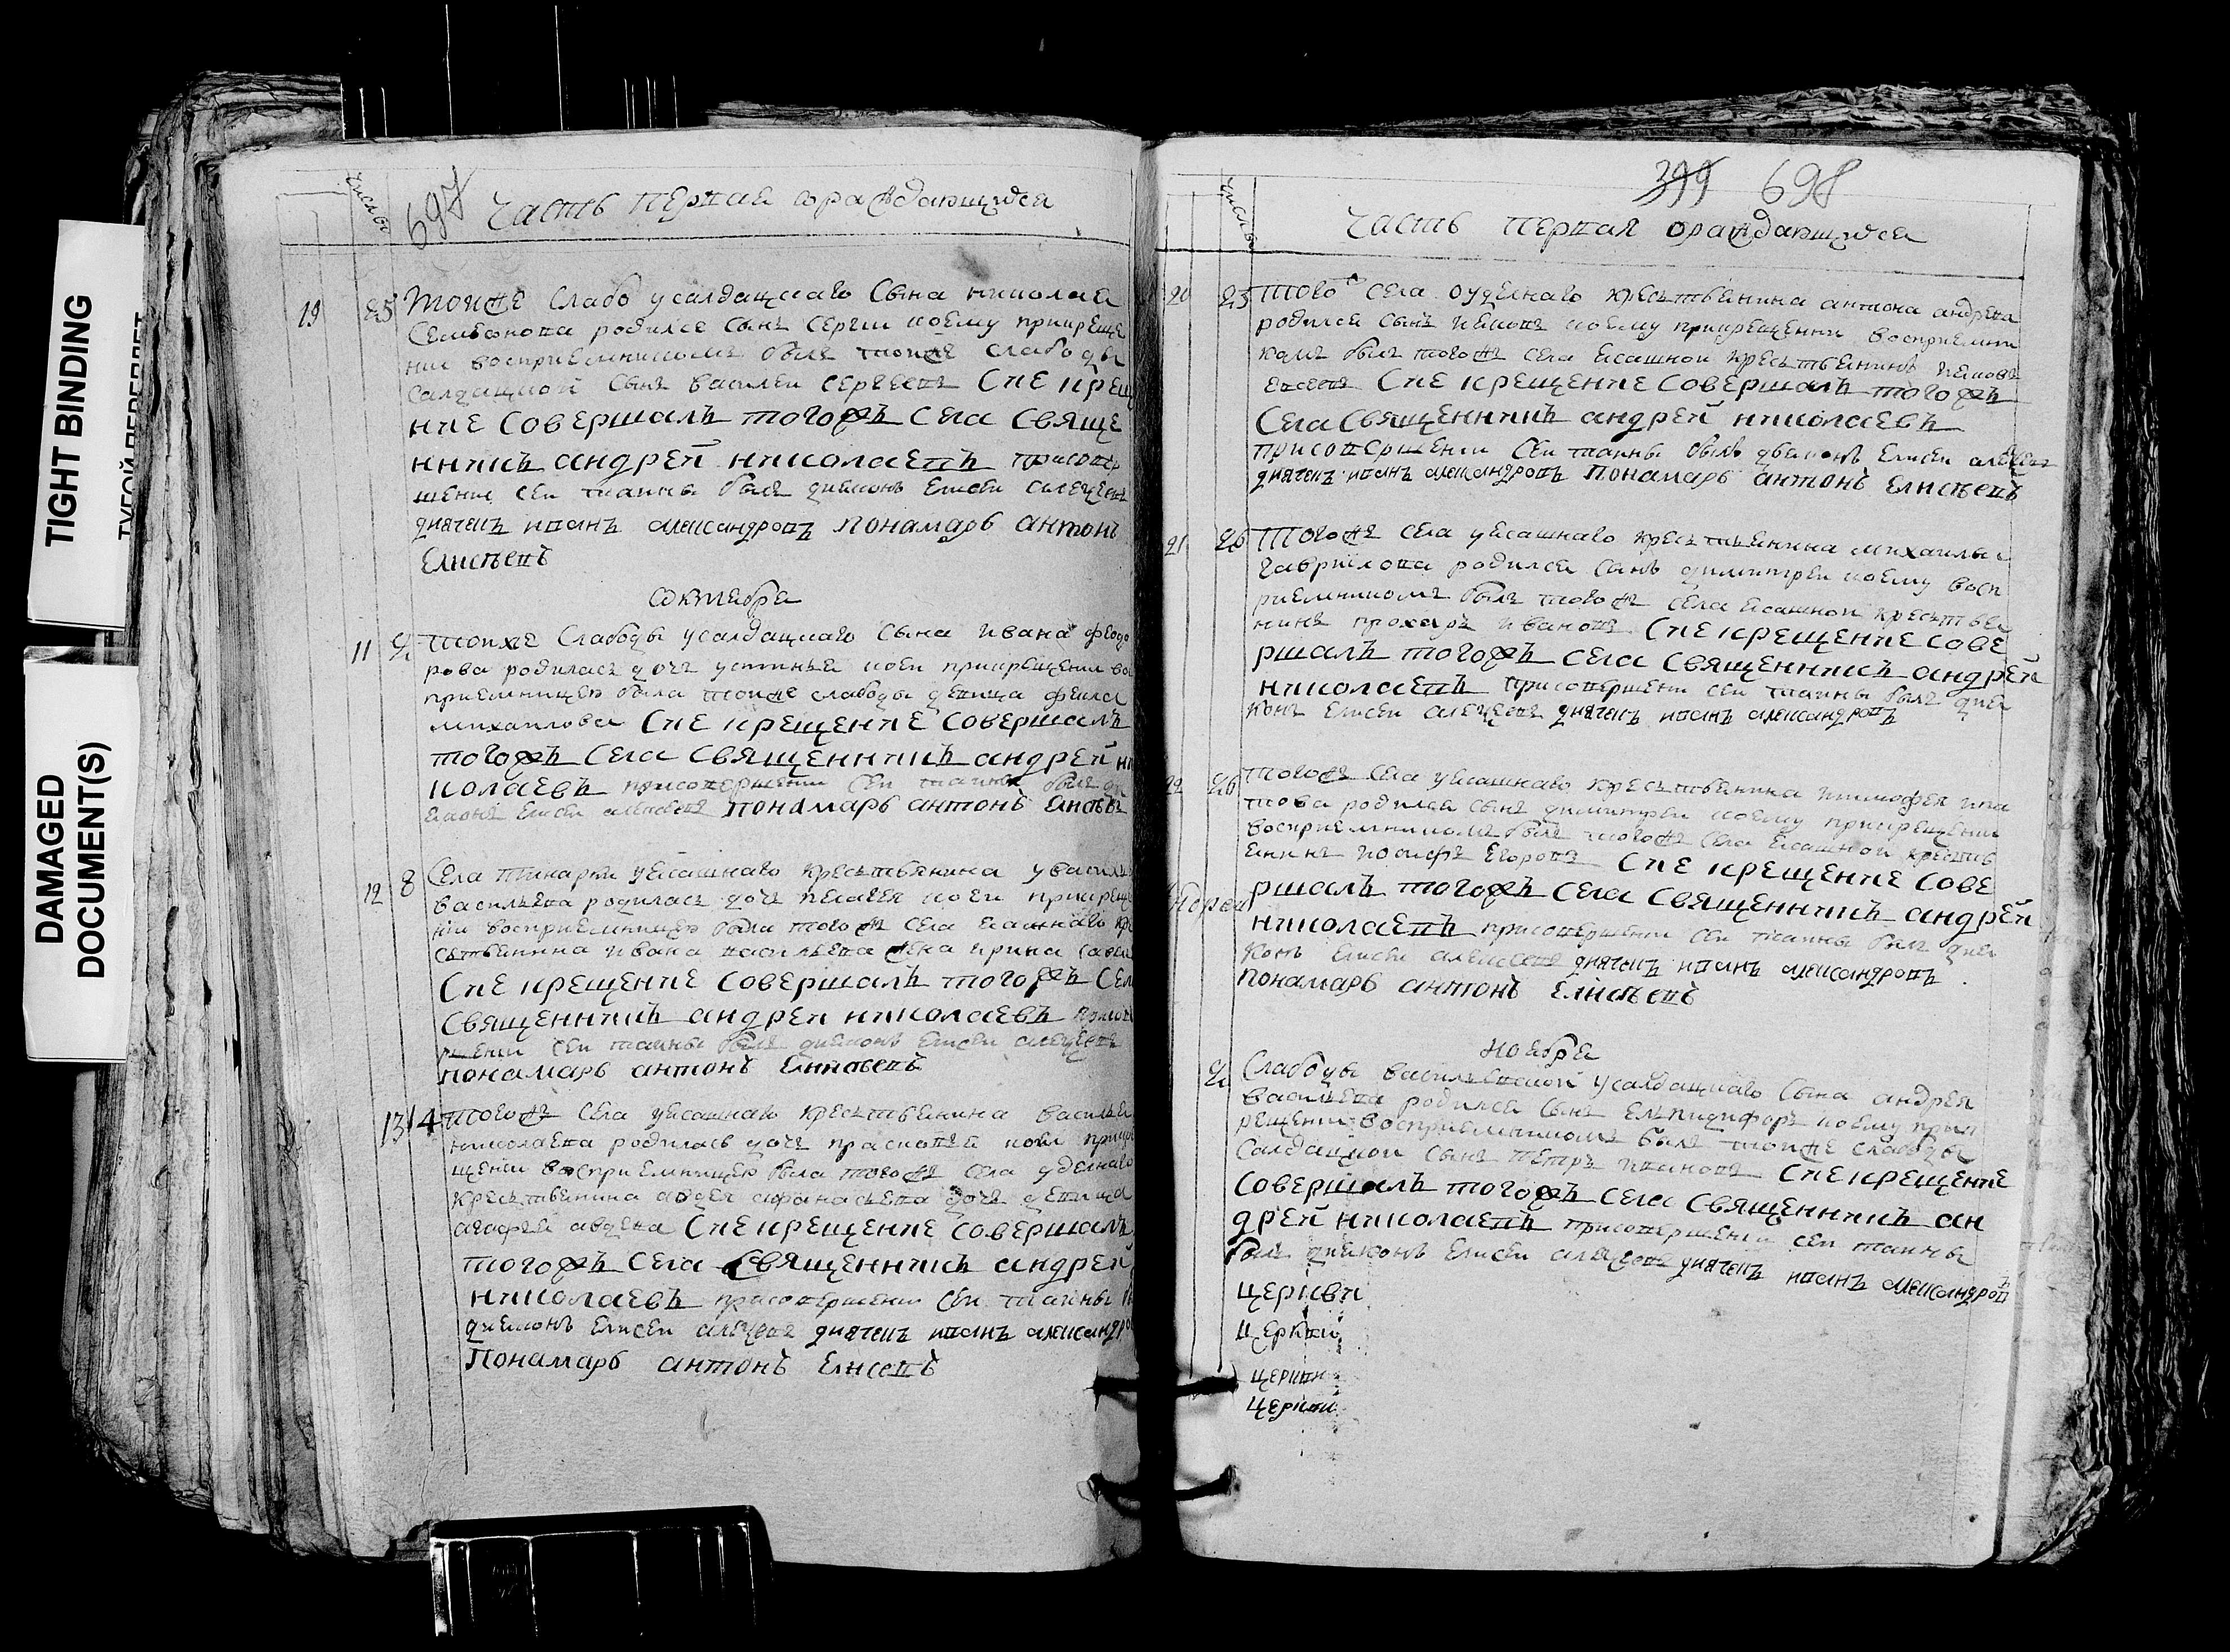 TIGHT BINDING
ТУГОЙ ПЕРЕПЛЕТ
DAMAGED
DOCUMENT(S)
числы
697
часть первая ораждающихся
19 25 тоиже слабо усалдацкаго сына николая
семьонова родился сынъ сергеи коему прикреще
нии восприемникомъ былъ тоиже слабоды
салдацкой сынъ василеи сергеевъ Сие креще
ние совершалъ тогожъ села Свяще
нникъ андрей николаевъ присовер
шении сеи таины былъ диаконъ Елисеи алеѯеевъ
диячекъ иванъ александровъ понамарь антонъ
Елисѣевъ
октября
11 2 тоиже слабоды усалдацкаго сына ивана феодо
рова родилась дочь устинья коеи прикрещении вос
приемницею была тоиже слабоды девица фекла
михаилова Сие крещение совершалъ
тогожъ села Священникъ андрей ни
колаевъ присовершении сеи таины былъ ди
аконъ Елисеи алеѯеевъ понамарь антонъ Елисѣевъ
12 8 села уясашнаго кресьтьянина василья
васильева родилась дочь пелагея коеи прикреще
нии восприемницею была тогожъ села ясашнаго кре
сьтьянина ивана васильева жена ирина савел
Сие крещение совершалъ тогожъ Села
Священникъ андреи николаевъ присове
ршении сеи таины былъ диаконъ Елисеи алеѯеевъ
понамарь антонъ Елисѣевъ
13 14 тогожъ села уясашнаго кресьтьянина василья
николаева родилась дочь прасковея коеи прикре
щении восприемницею была тогожъ села уделнаго
кресьтьянина авдея афанасьева дочь девица
агафея авдева Сие крещение совершалъ
тогожъ села Священникъ андрей
николаевъ присовершении сеи таины
диаконъ Елисеи алеѯеевъ диячекъ иванъ александро
Понамарь антонъ Елисевъ
числы
399 698
часть первая ораждающихся
20 23 тогожъ села оуделнаго кресьтьянина антона андреева
родился сынъ иаковъ коему прикрещении восприемни
комъ былъ тогожъ села ясашной кресьтьянинъ иаковъ
Сие крещение совершалъ тогожъ
села Священникъ андрей николаевъ
присовершении сеи таины былъ диаконъ Елисеи алеѯеевъ
диячекъ иванъ александровъ понамарь антонъ Елисѣевъ
21 26 тогожъ села уясашнаго кресьтьянина михаилы
гаврилова родился сынъ димитреи коему восп
риемникомъ былъ тогожъ села ясашной кресьтья
нинъ прохаръ ивановъ Сие крещение сове
ршалъ тогожъ села Священникъ андрей
николаевъ присовершении сеи таины былъ диа
конъ Елисеи алеѯеевъ диячекъ иванъ александровъ
22 26 тогожъ села уясашнаго кресьтьянина тимофея ива
нова родился сынъ димитреи коему прикрещении
восприемникомъ былъ тогожъ села ясашной кресть
янинъ иосифъ Егоровъ Сие крещение сове
ршалъ тогожъ села Священникъ андрей
николаевъ присовершении сеи таины былъ диа
конъ Елисеи алексеевъ диячекъ иванъ александровъ
понамарь антонъ Елисѣевъ
ноября
2 Слабоды васильевской усалдацкаго сына андрея
васильева родился сынъ Ельпидифоръ коему прик
рещении восприемникомъ былъ тоиже слабоды
салдацкой сынъ петръ ивановъ Сие крещение
совершалъ тогожъ села Священникъ ан
дрей николаевъ присовершении сеи таины
былъ диаконъ Елисеи алеѯеевъ диячекъ иванъ александровъ
церкви
церкви
церкви
церкви